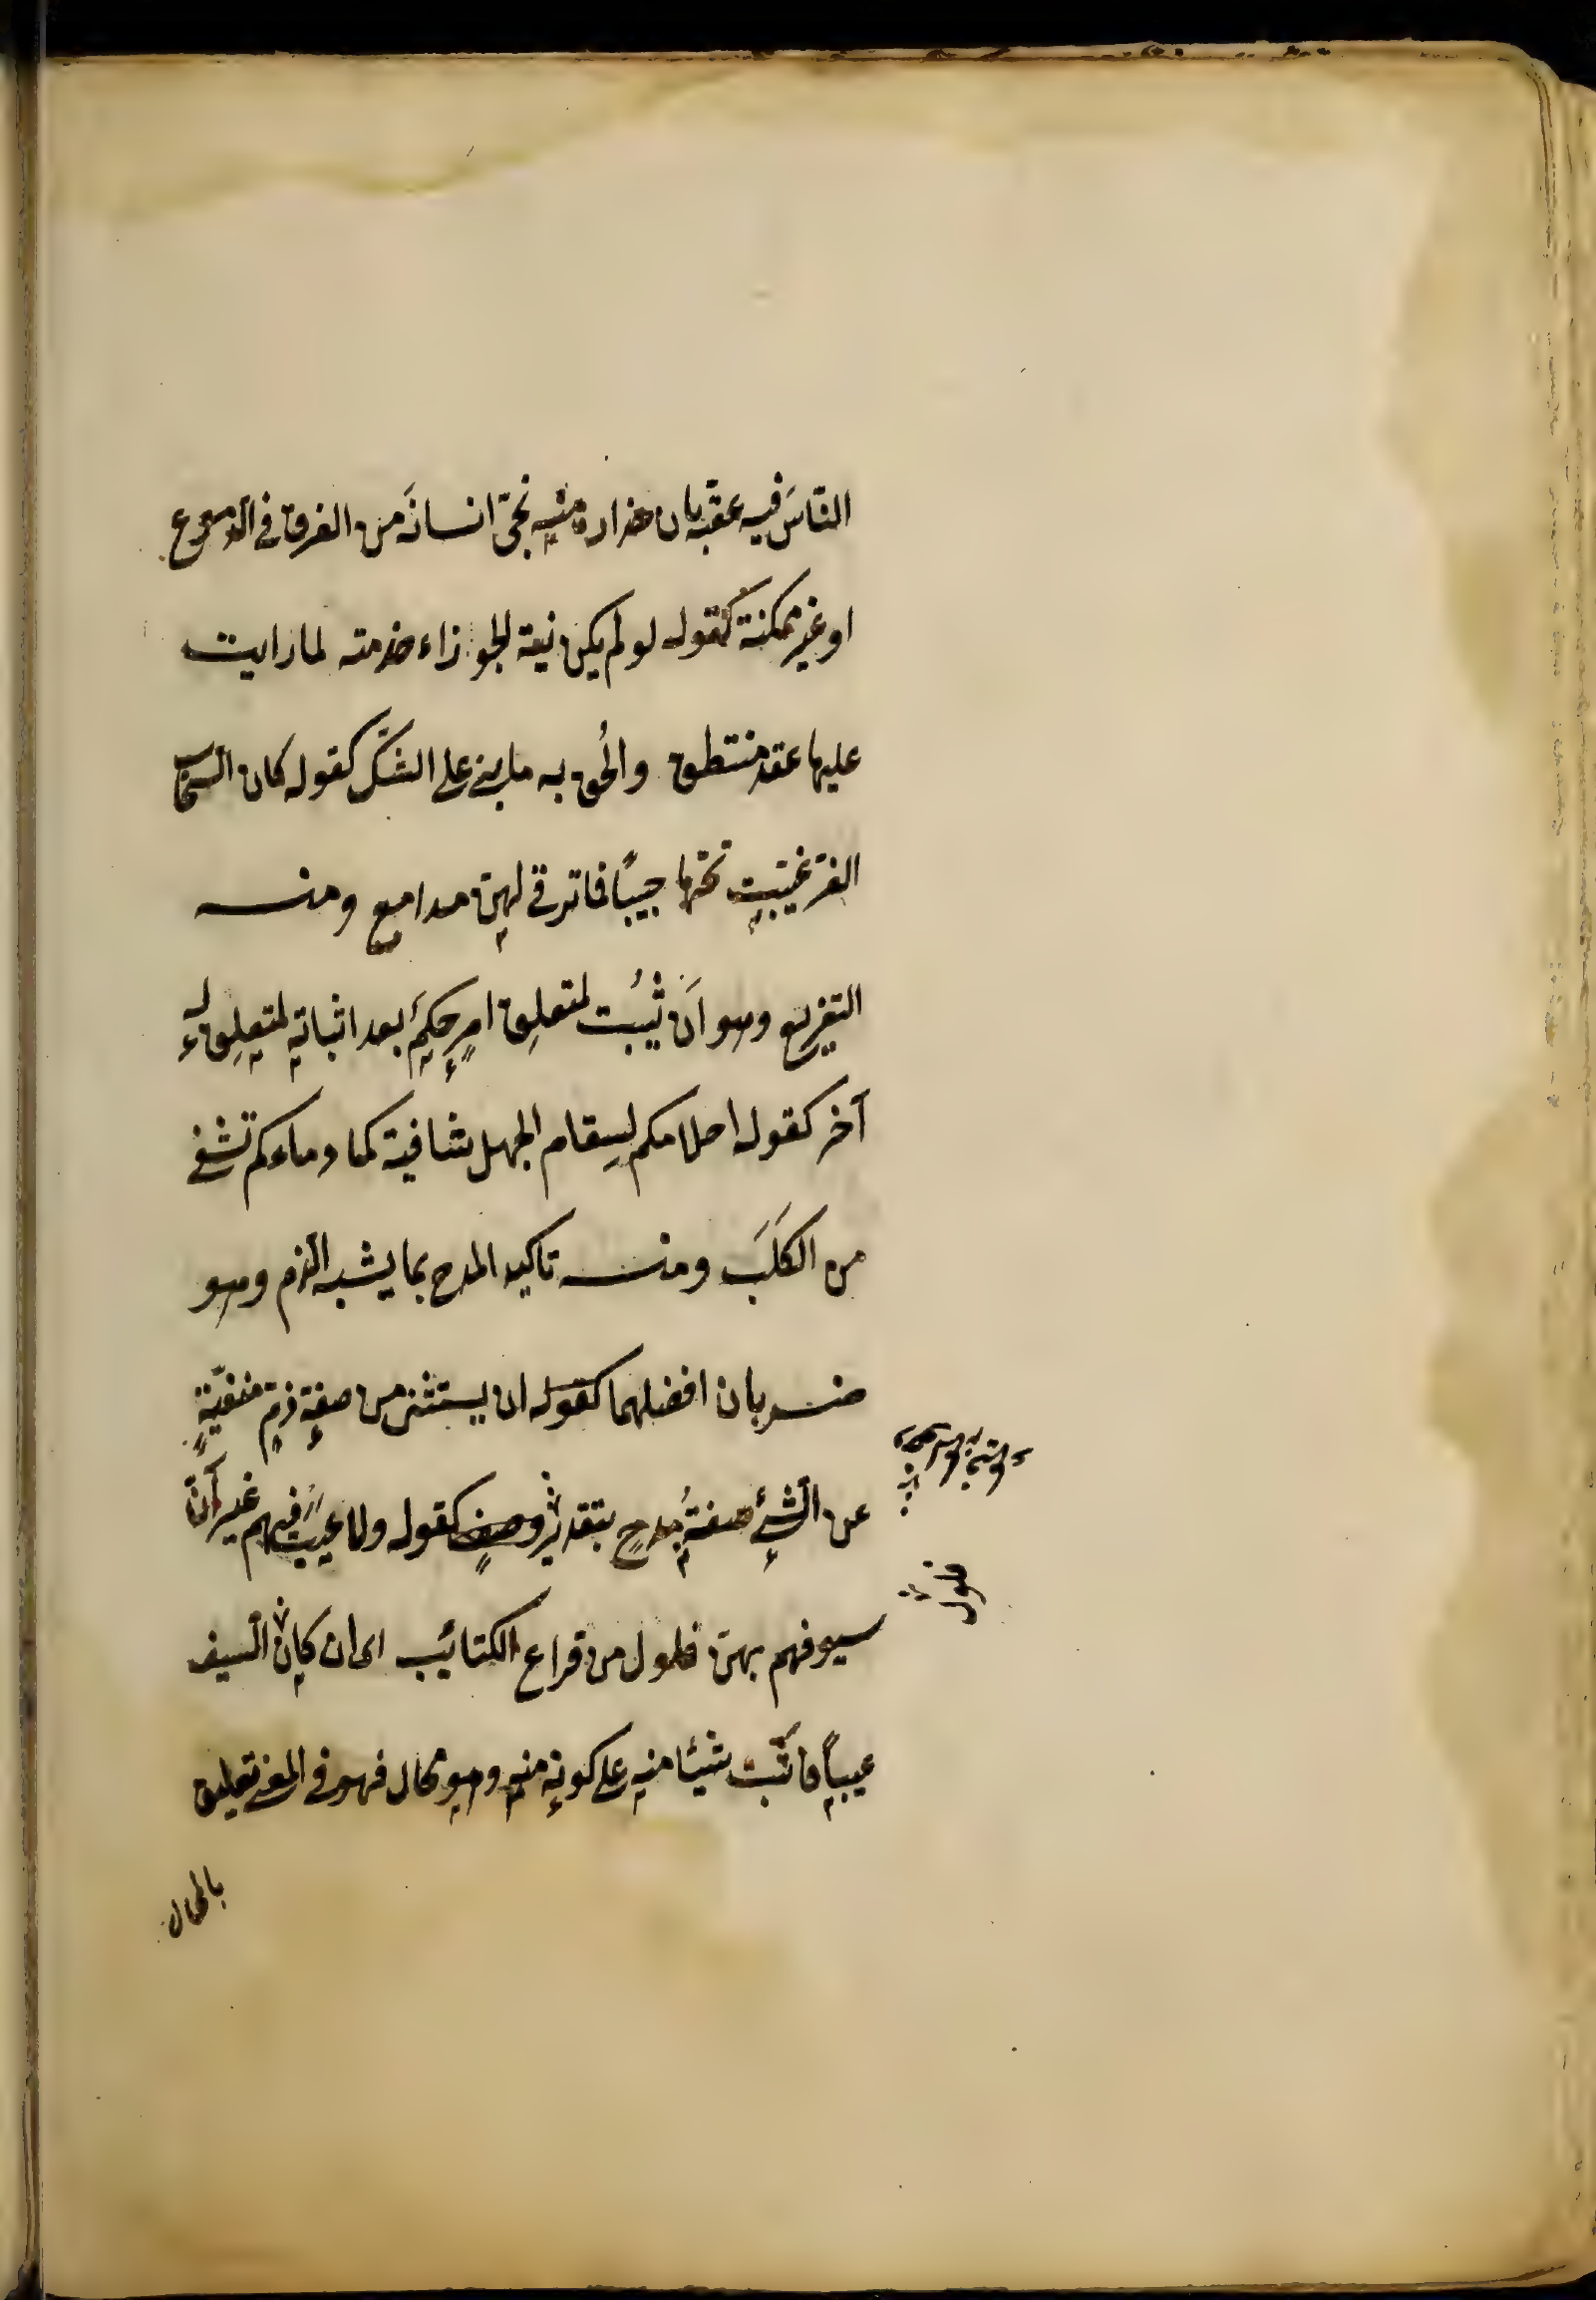 النّاسَ فيه عقبّه بان حذاره منهِ نجّى انسانَه من الغرق في الدّموع
او غير ممكنة كقوله لو لم يكن نية الجوزاء خدمته لما رايت
عليها عقد منتطق والحُق به ما بني على الشكّ كقوله كان السّحاب
الغرّ غيّبت تحتها حبيبًا فما ترقى لهنّ مدامع ومنه
التفريع وهو اَن يُثبت لمتعلِق امرٍ حكمٌ بعد اثباتهِ لمتعلِق له
آخر كقوله احلامكم لسِقام الجهل شافية كما دماءكم تشفى
من الكَلَبَ ومنه تاكيد المدح بما يشبه الذم وهو
ضربان افضلهما كقوله ان يستثنى من صفةِ ذمٍّ منفيّةٍ
عن الشّئِ صفةُ مدحٍ بتقدير كقوله ولا عيبَ فيهم غير أنّ
سيوفهم بهنّ فلول من قراع الكتائب اى ان كان السيف
عيبًا فاثبت شيئا منهِ على كونهِ منهِ وهو محال فهو في المعنى تعليق
بالمحال
فلول